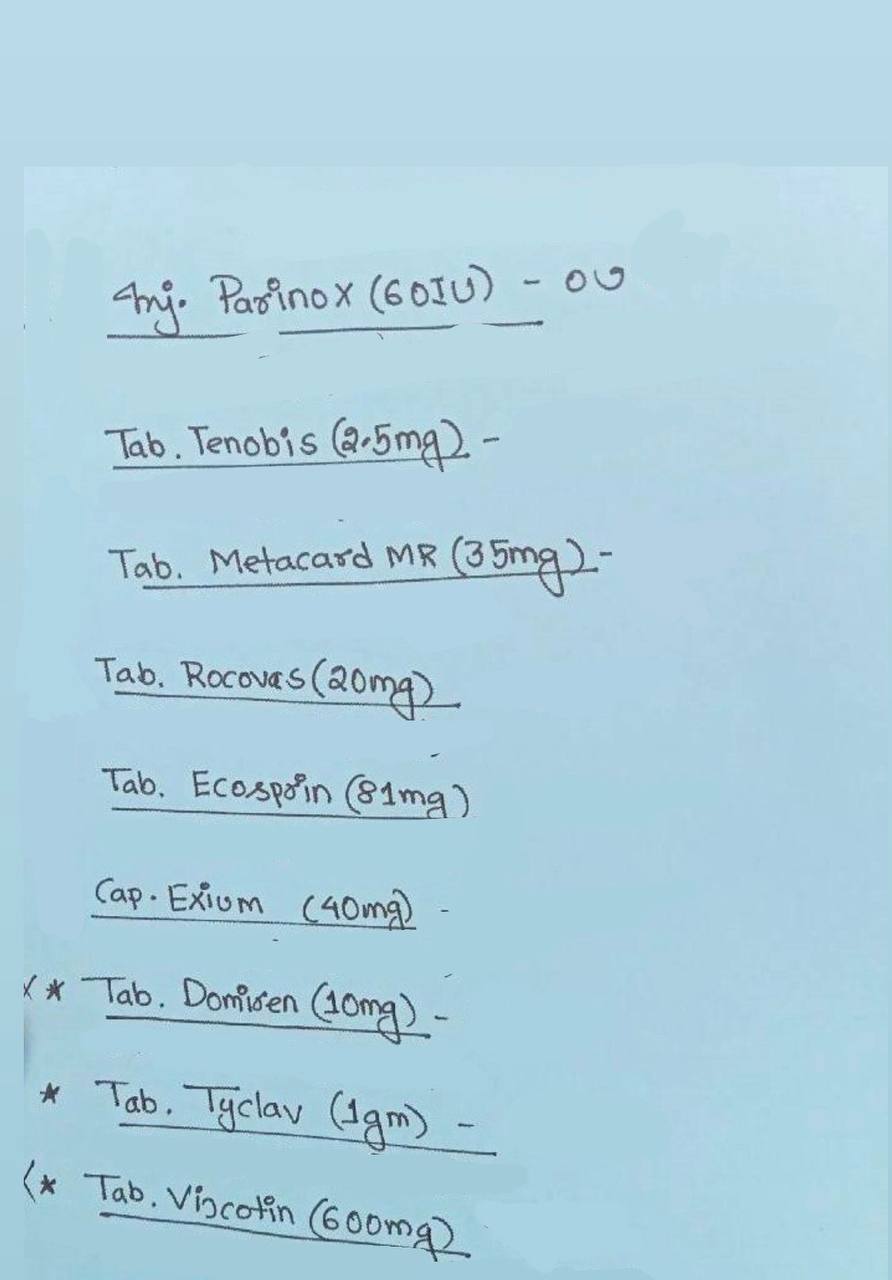 Inj. Parinox (60IU) - ০৬
Tab. Tenobis (2.5mg) -
Tab. Metacard MR (35mg) -
Tab. Rocovas (20mg)
Tab. Ecosprin (81mg)
Cap. Exium (40mg) -
* Tab. Domiren (10mg) -
* Tab. Tyclav (1gm) -
* Tab. Viscotin (600mg)